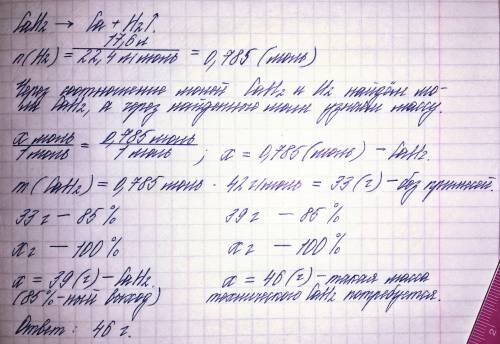 CaH2 → Ca + H2↑.
n(H2) = 17,6 л / 22,4 л/моль = 0,785 (моль)
Через соотношение молей CaH2 и H2 найдём мо-
ли CaH2, а через найденные моли узнаем массу.
x моль / 1 моль = 0,785 моль / 1 моль ; x = 0,785 (моль) – CaH2.
m(CaH2) = 0,785 моль · 42 г/моль = 33 (г) – без примесей.
33 г – 85 % 39 г – 85 %
x г – 100 % x г – 100 %
x = 39 (г) – CaH2. x = 46 (г) – такая масса
(85%-ный выход) технического CaH2 потребуется.
Ответ: 46 г.
2